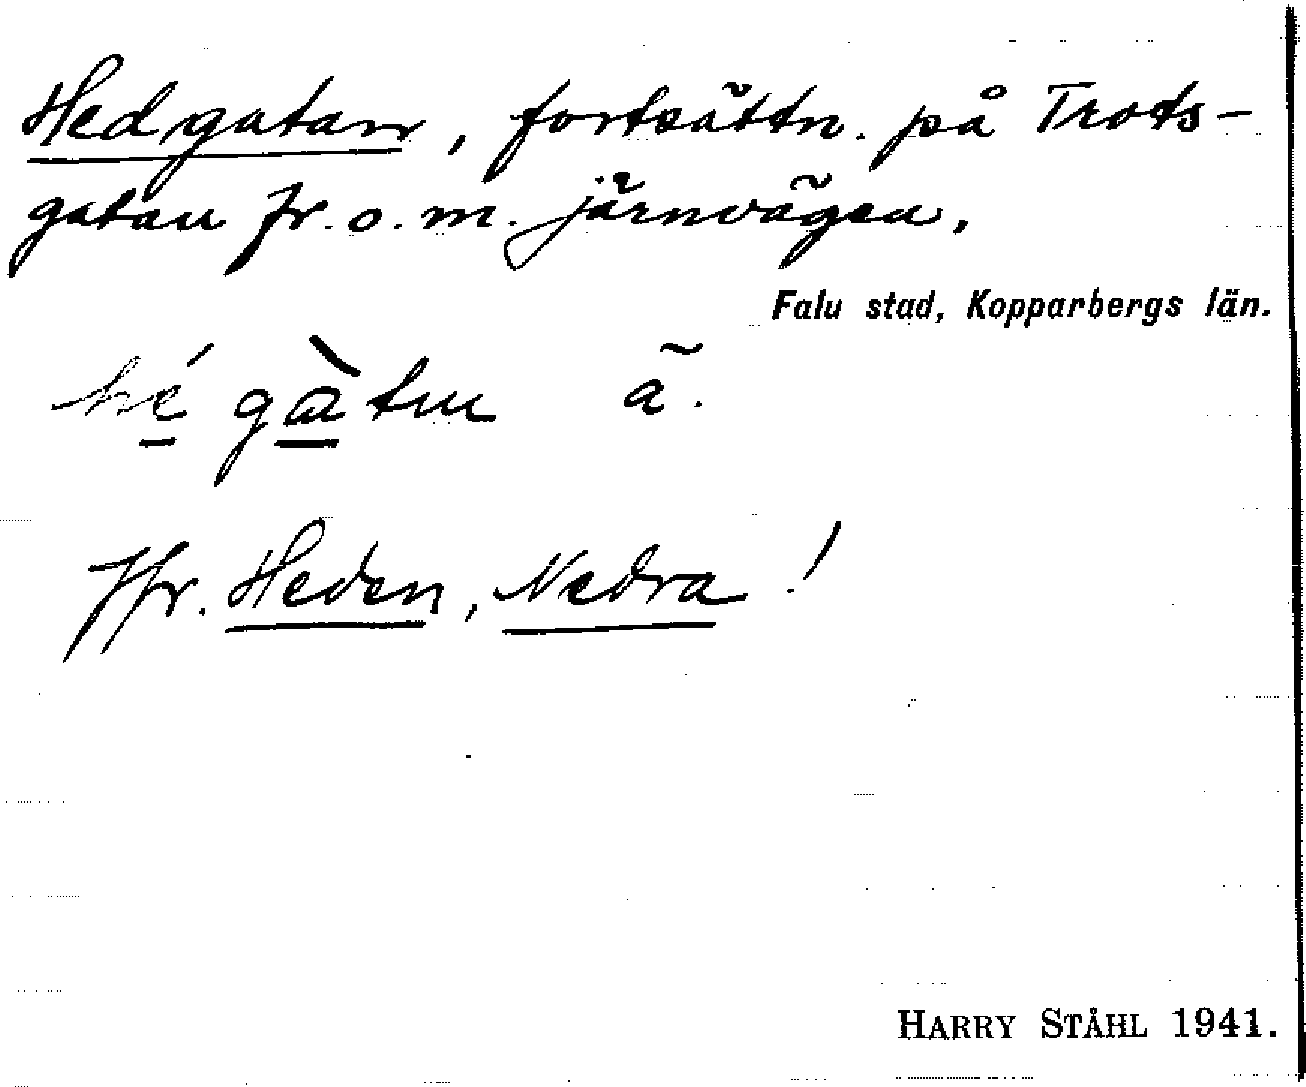 Hedgatan, fortsättn. på Trots-
gatan fr. o. m. järnvägen.
Falu stad, Kopparbergs län.
hé gàtm ã.
Jfr. Heden, Nedra!
HARRY STÅHL 1941.